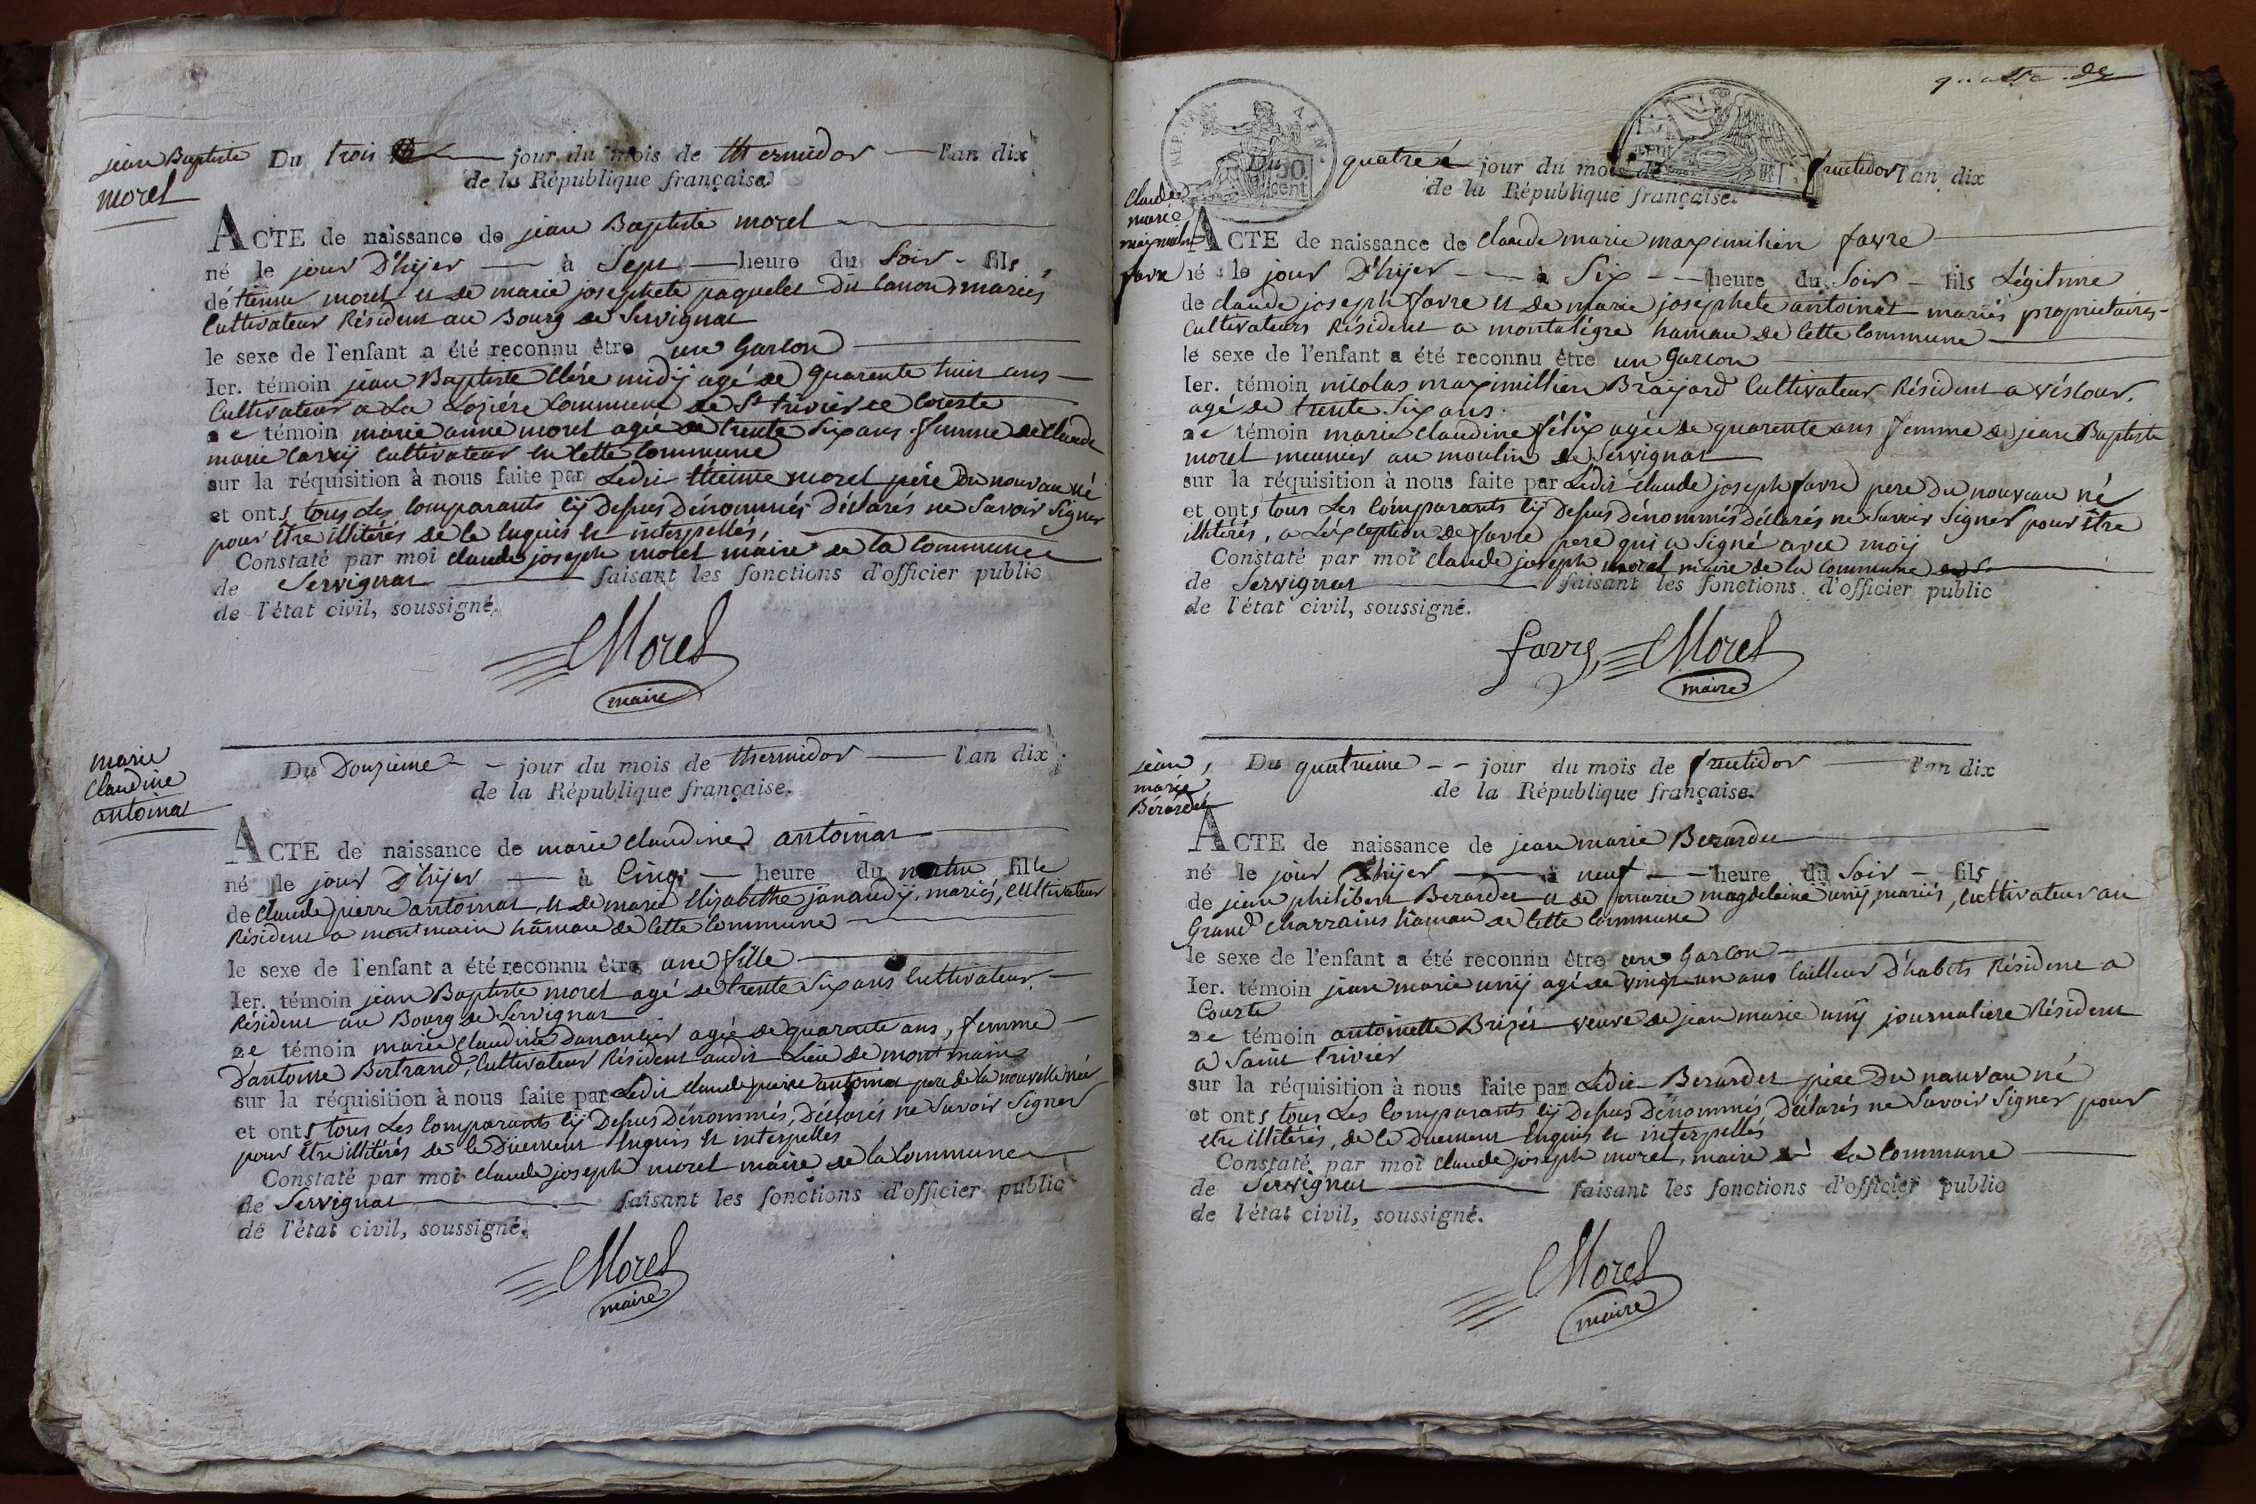 jean Baptiste
morel
Du trois jour du mois de thermidor l'an dix
de la République française.
ACTE de naissance de jean Baptiste morel
né le jour D'hijer à Sept heure du Soir fils
détienne morel et de marie josephete paquelet Du Canon, mariés,
Cultivateur Résident au Bourg de Servignat
le sexe de l'enfant a été reconnu être un Garcon
Ier. témoin jean Baptiste Clére midij agé de quarente huit ans
Cultivateur a La Loziére Commune de St trivier de Courte
2e témoin marie anne morel agée de trente Six ans femme de Claude
marie Carrij Cultivateur en Cette Commune
sur la réquisition à nous faite par Ledit étienne morel pére Du nouvau né
et ont tous Les Comparants Cij Depus Dénommés Déclarés ne Savoir Signer
pour être illitérés de Ce Enquis et interpellés,
Constaté par moi claude joseph morel maire de la Commune
de Servignat faisant les fonctions d'officier public
de l'état civil, soussigné.
Morel
maire
marie
Claudine
antoinat
Du Douzieme jour du mois de thermidor l'an dix
de la République française.
ACTE de naissance de marie Claudine antoinat
né le jour D'hijer à Cinq heure du matin fille
de Claude pierre antoinat, et de marie Elisabethe janaudij, mariés, Cultivateur
Résident a montmain hâmau de Cette Commune
le sexe de l'enfant a été reconnu être une fille
Ier. témoin jean Baptiste morel agé de trente Six ans Cultivateur
Résident au Bourg de Servignat
2e témoin marie Claudine Dananlier agée de quarante ans, femme
D'antoine Bertrand, Cultivateur Résident audit Lieu de montmain
sur la réquisition à nous faite par Ledit Claude pierre antoinat pere de la nouvelle née
et ont tous Les Comparants Cij Depus Dénommés, Déclarés ne Savoir Signer
pour être illitérés de Ce Duement Enquis et interpellés
Constaté par moi Claude joseph morel maire de la Commune
de Servignat faisant les fonctions d'officier public
de l'état civil, soussigné.
Morel
maire
REP. FRA
50.
cent
Claude
marie
maximilien
favre
Du quatre jour du mois de fructidor l'an dix
de la République française.
ACTE de naissance de Claude marie maximilien favre
né le jour D'hijer à Six heure du Soir fils Légitime
de claude joseph favre et de marie josephete antoinat mariés propriétaires
Cultivateurs Résident a montalégre hamau de Cette Commune
le sexe de l'enfant a été reconnu être un Garcon
Ier. témoin nicolas maximillien Bréajord Cultivateur Résident a véscour.
agé de trente Six ans.
2e témoin marie Claudine félix agée de quarente ans femme de jean Baptiste
morel meunier au moulin de Servignat
sur la réquisition à nous faite par Ledit Claude joseph favre pere Du nouveau né
et ont tous Les Comparants Cij Depus Dénommés Déclarés ne Savoir Signer pour être
illitérés, a Léxception de favre pere qui a Signé avec moij
Constaté par moi Claude joseph morel maire de la Commune
de Servignat faisant les fonctions d'officier public
de l'état civil, soussigné.
favre Morel
maire
jean
marie
Bérardet
Du quatrieme jour du mois de fructidor l'an dix
de la République française.
ACTE de naissance de jean marie Berardet
né le jour D'hijer à neuf heure du Soir fils
de jean philibert Berardet et de marie magdelaine unij, mariés, Cultivateur au
Grand Charrains hâmau de Cette Commune
le sexe de l'enfant a été reconnu être un Garcon
Ier. témoin jean marie unij agé de vingt un ans tailleur D'habits Résident a
Courte
2e témoin antoinette Brizet veuve de jean marie unij journaliere Résident
a Saint trivier
sur la réquisition à nous faite par Ledit Berardet pére Du nauvau né
et ont tous Les Comparants Cij Depus Dénommés Déclarés ne Savoir Signer pour
etre illitérés, de Ce Duement Enquis et interpellés
Constaté par moi Claude joseph morel, maire de La Commune
de Servignat faisant les fonctions d'officier public
de l'état civil, soussigné.
Morel
maire